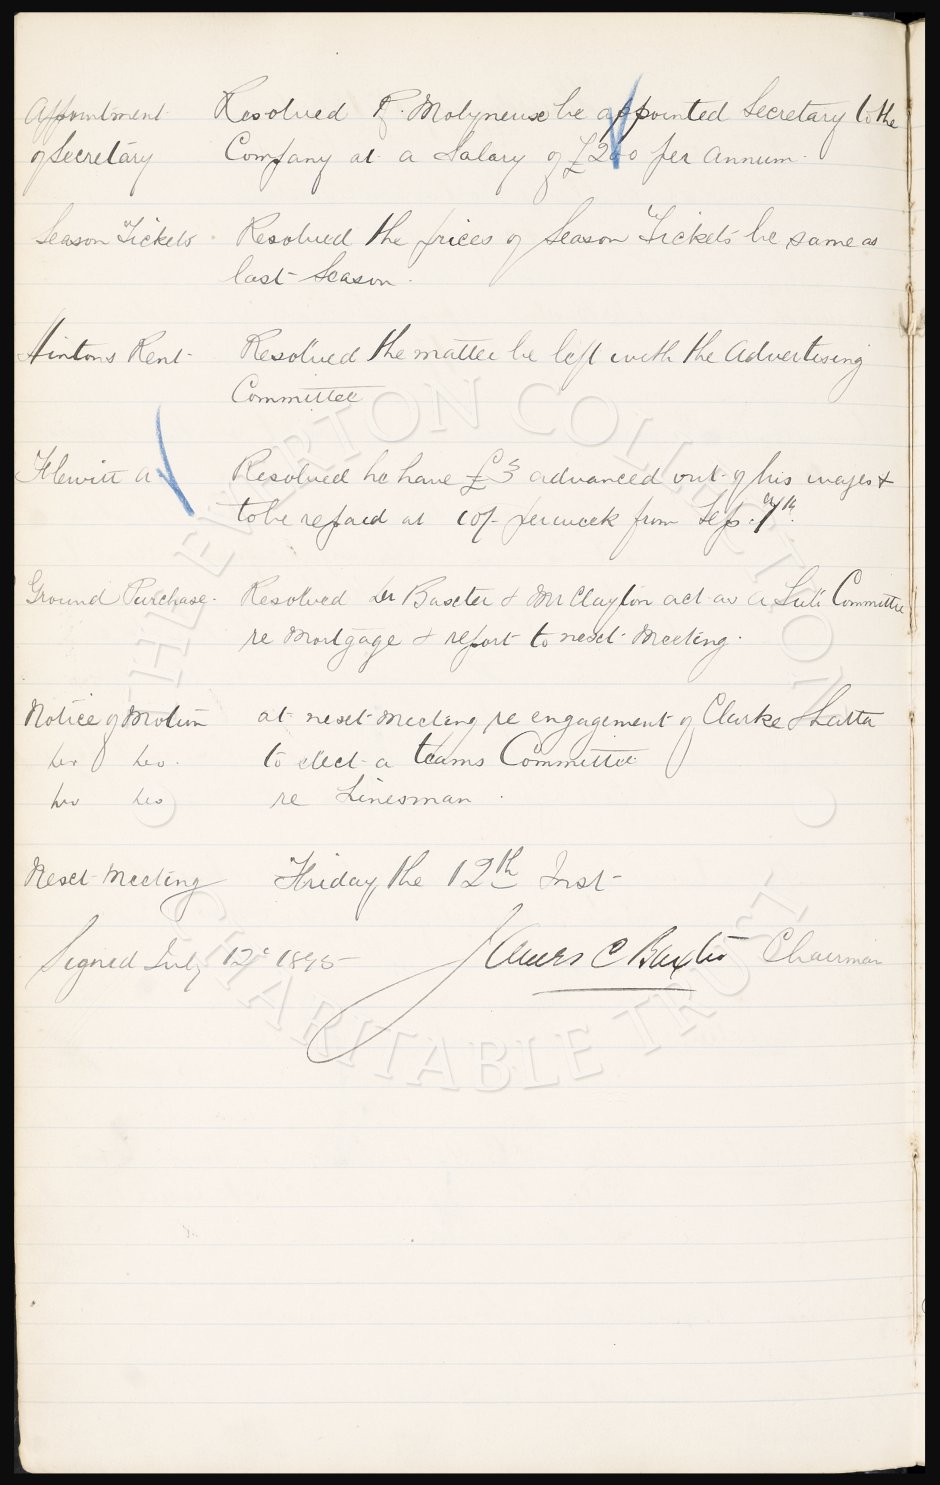 Appointment Resolved R. Molyneux be appointed Secretary to the
of Secretary Company at a Salary of £ per Annum.
Season Tickets Resolved the prices of Season Tickets be same as
last Season.
Hintons Rent Resolved the matter be left with the Advertising
Committee
Flewitt A Resolved he have £3 advanced out of his wages &
to be repaid at 10/- per week from Sep. 7th.
Ground Purchase. Resolved Dr Baxter & Mr Clayton act as a Sub Committee
re Mortgage & report to next Meeting.
Notice of Motion at next meeting re engagement of Clarke & Latta
do do. to elect a teams Committee
do do re Linesman.
Next Meeting Friday the 12th Inst
Signed July 12 1895 James C Baxter Chairman
THE EVERTON COLLECTION
CHARITABLE TRUST